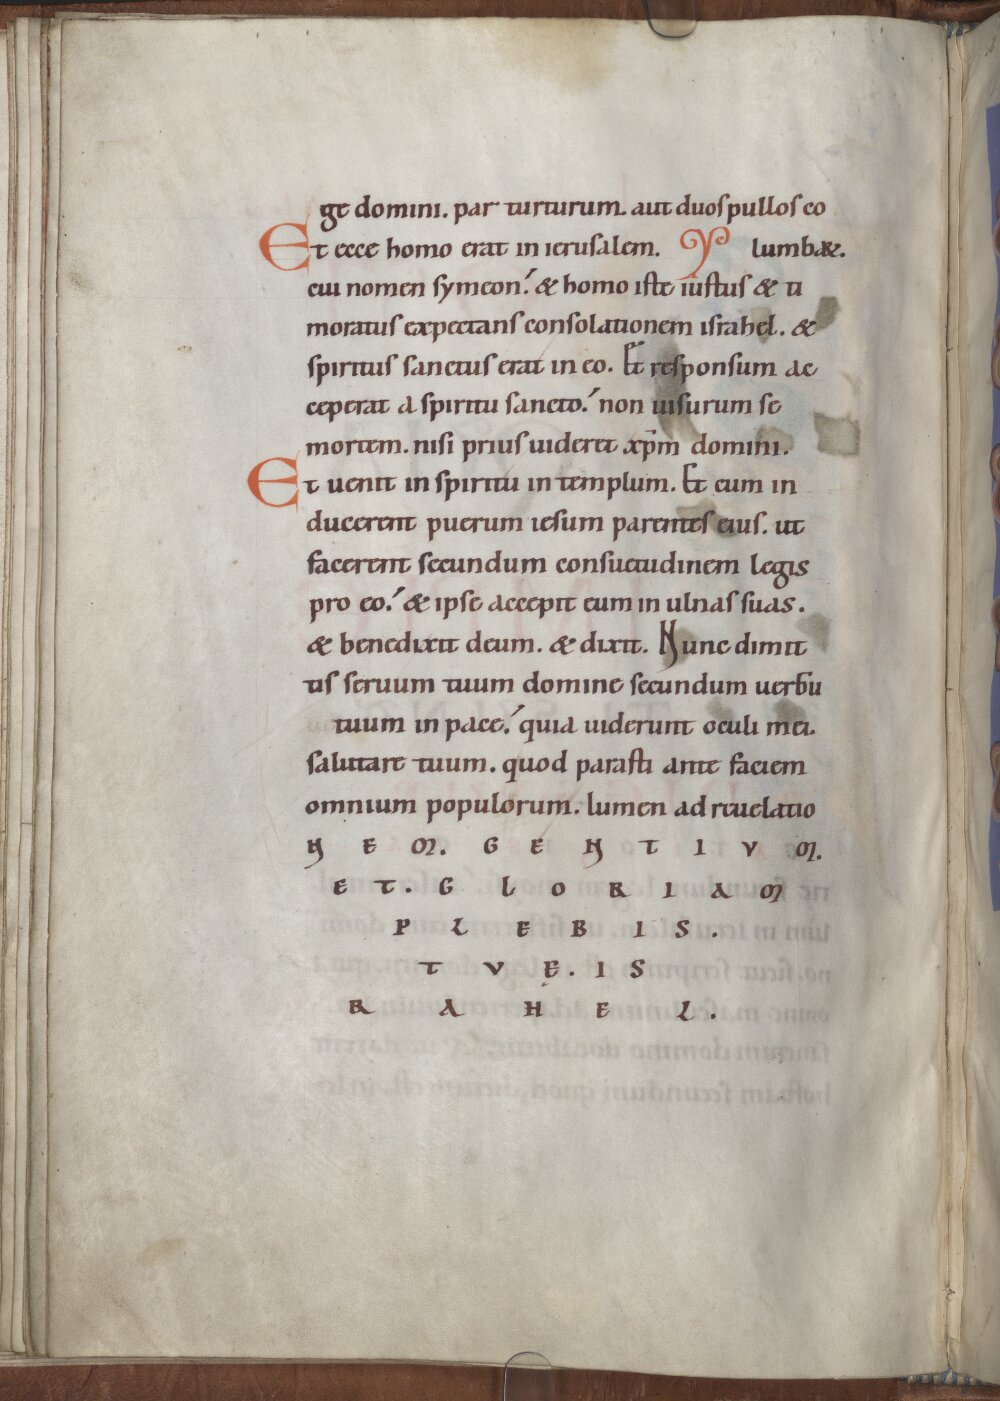 ge domini. par turturum. aut duos pullos co
Et ecce homo erat in ierusalem. lumbæ.
cui nomen symeon. & homo iste iustus & ti
moratus expectans consolationem israhel. &
spiritus sanctus erat in eo. Et responsum ac
ceperat a spiritu sancto. non uisurum se
mortem. nisi prius uideret xp̅m domini.
Et uenit in spiritu in templum. Et cum in
ducerent puerum iesum parentes eius. ut
facerent secundum consuetudinem legis
pro eo. & ipse accepit eum in ulnas suas.
& benedixit deum. & dixit. Nunc dimit
tis seruum tuum domine secundum uerbū
tuum in pace. quia uiderunt oculi mei.
salutare tuum. quod parasti ante faciem
omnium populorum. lumen ad reuelatio
NEM. GENTIVM.
ET. GLORIAM
PLEBIS.
TVE. IS
RAHEL.